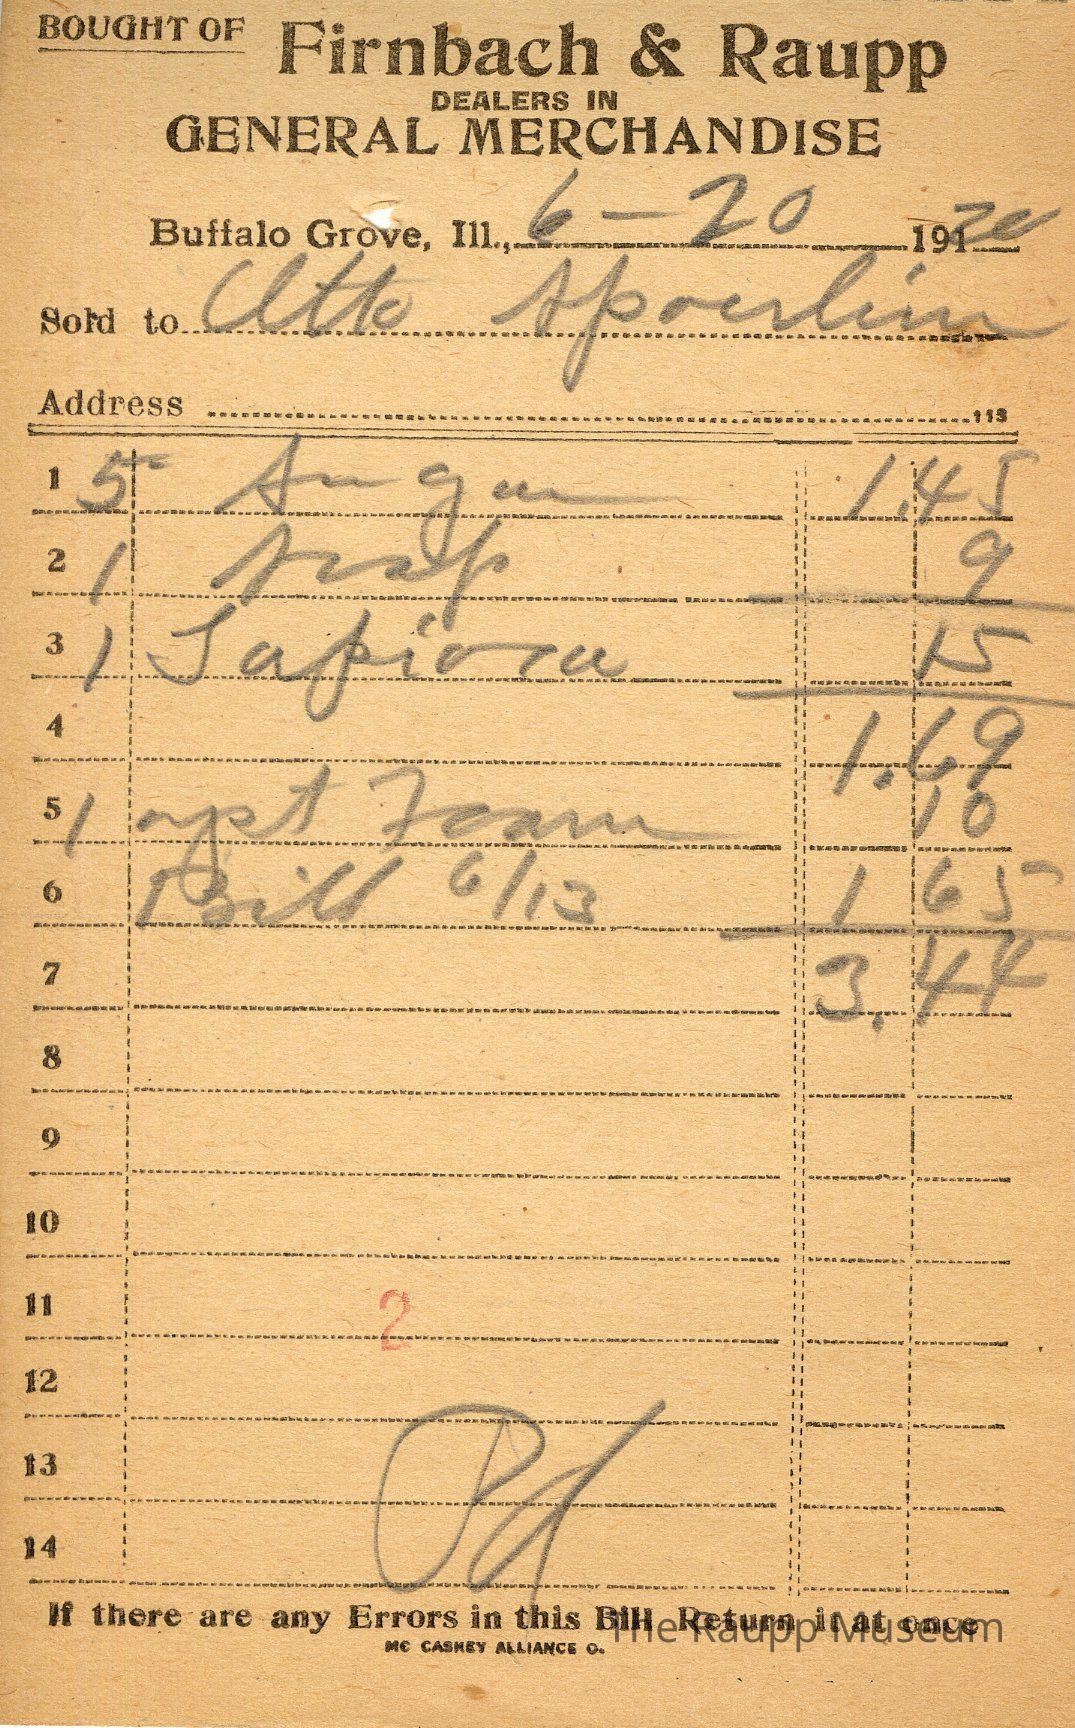 BOUGHT OF Firnbach & Raupp
DEALERS IN
GENERAL MERCHANDISE
Buffalo Grove, Ill., 6-20 1920
Sold to Otto Spoerlein
Address 113
1 5 Sugar 1.45
2 1 Soap 9
3 1 Tapioca 15
4 1.69
5 1 yst Foam 10
6 Bill 6/13 1 65
7 3.44
8
9
10
11 2
12
13 Pd
14
If there are any Errors in this Bill Return it at once
MC CASKEY ALLIANCE O.
The Raupp Museum